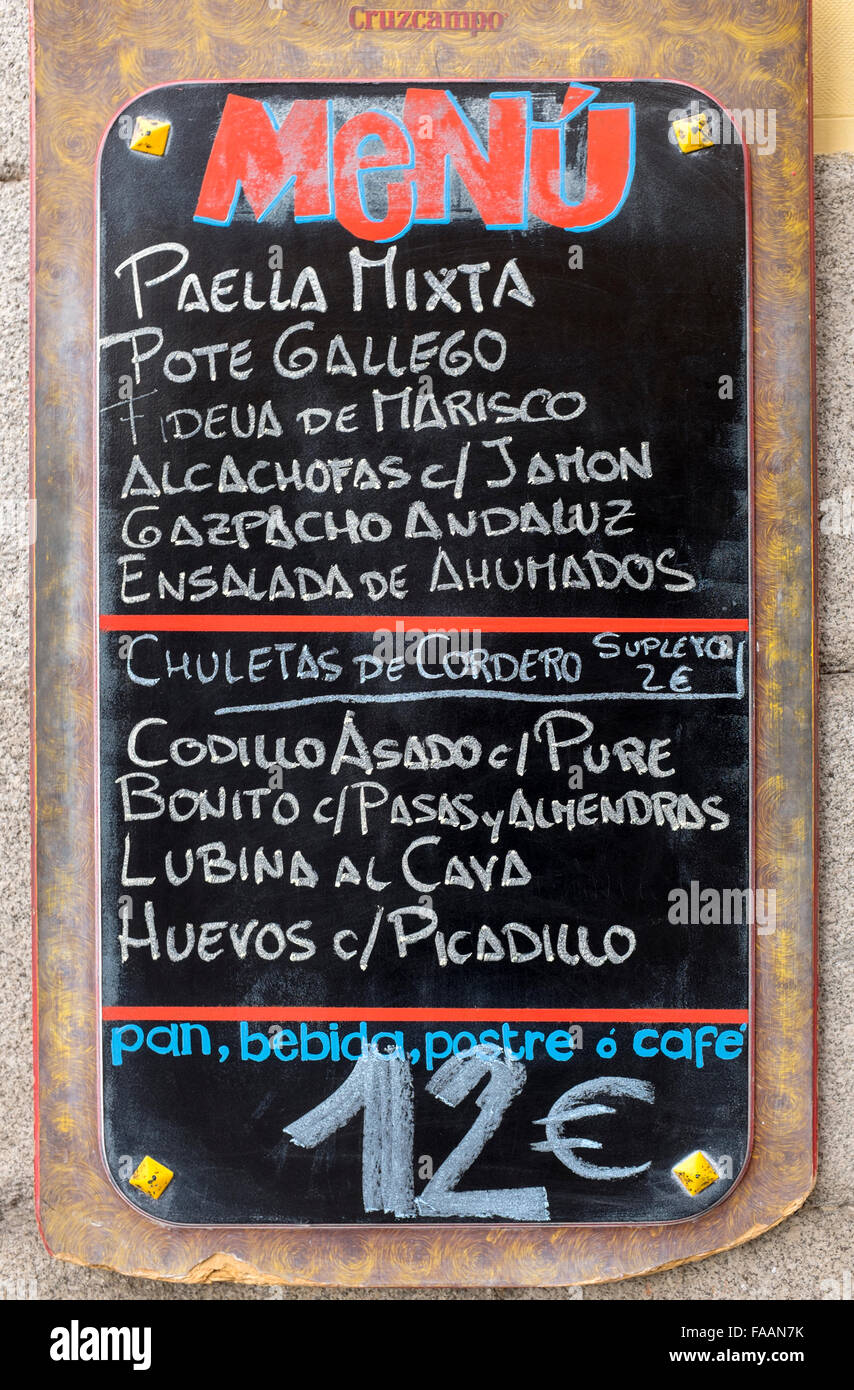 Cruzcampo
MeNÚ
PAELLA MIXTA
POTE GALLEGO
FIDEUA DE MARISCO
ALCACHOFAS c/ JAMON
GAZPACHO ANDALUZ
ENSALADA DE AHUMADOS
CHULETAS DE CORDERO SUPLETO 2€
CODILLO ASADO c/ PURE
BONITO c/ PASAS y ALMENDRAS
LUBINA AL CAVA
HUEVOS c/ PICADILLO
pan, bebida, postre ó café
12€
alamy stock photo
FAAN7K
www.alamy.com